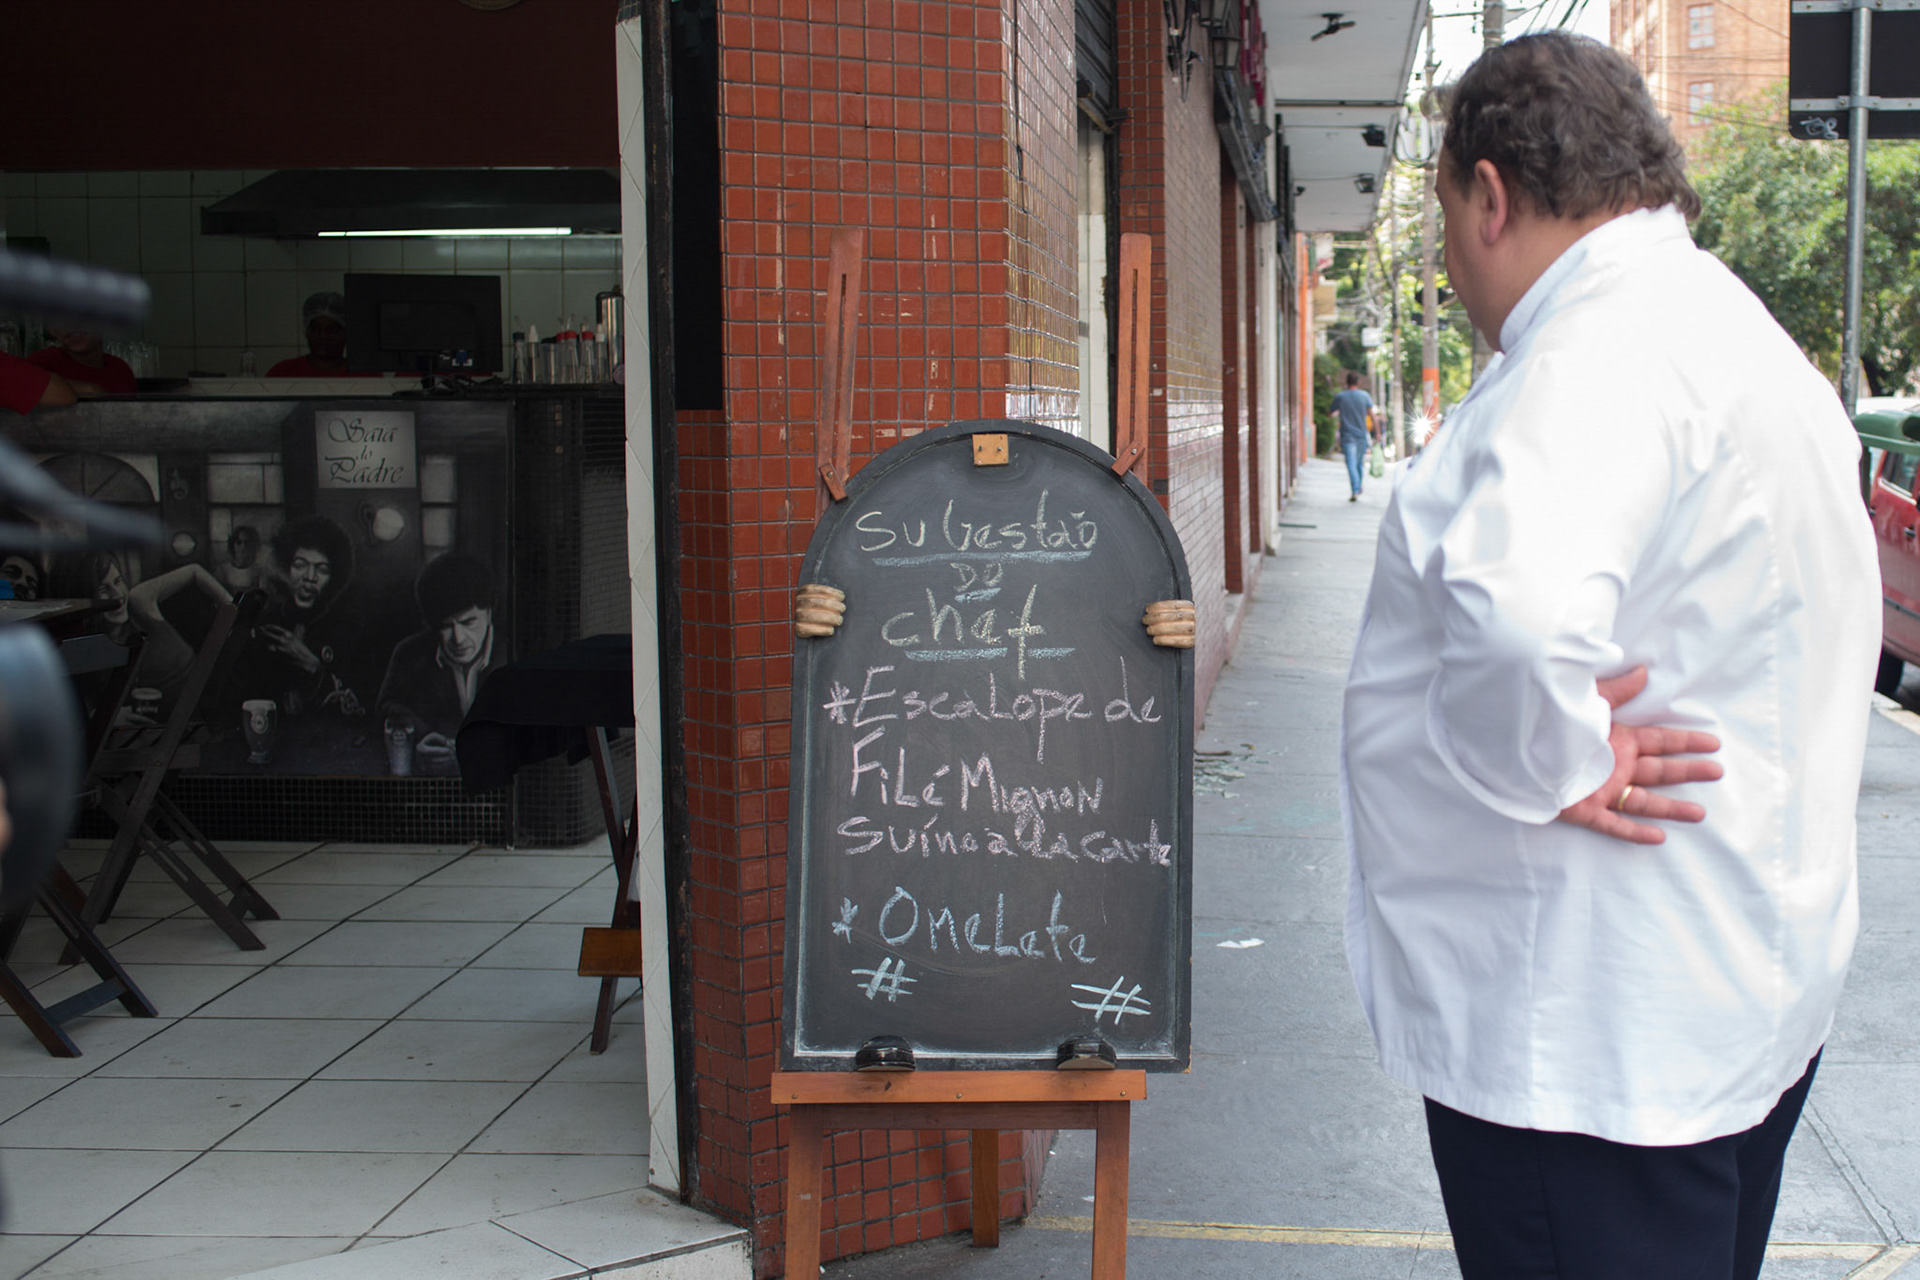 Saia
do
Padre
Sugestão
DO
chef
*Escalope de
Filé Mignon
Suíno a la carte
* Omelete
# #